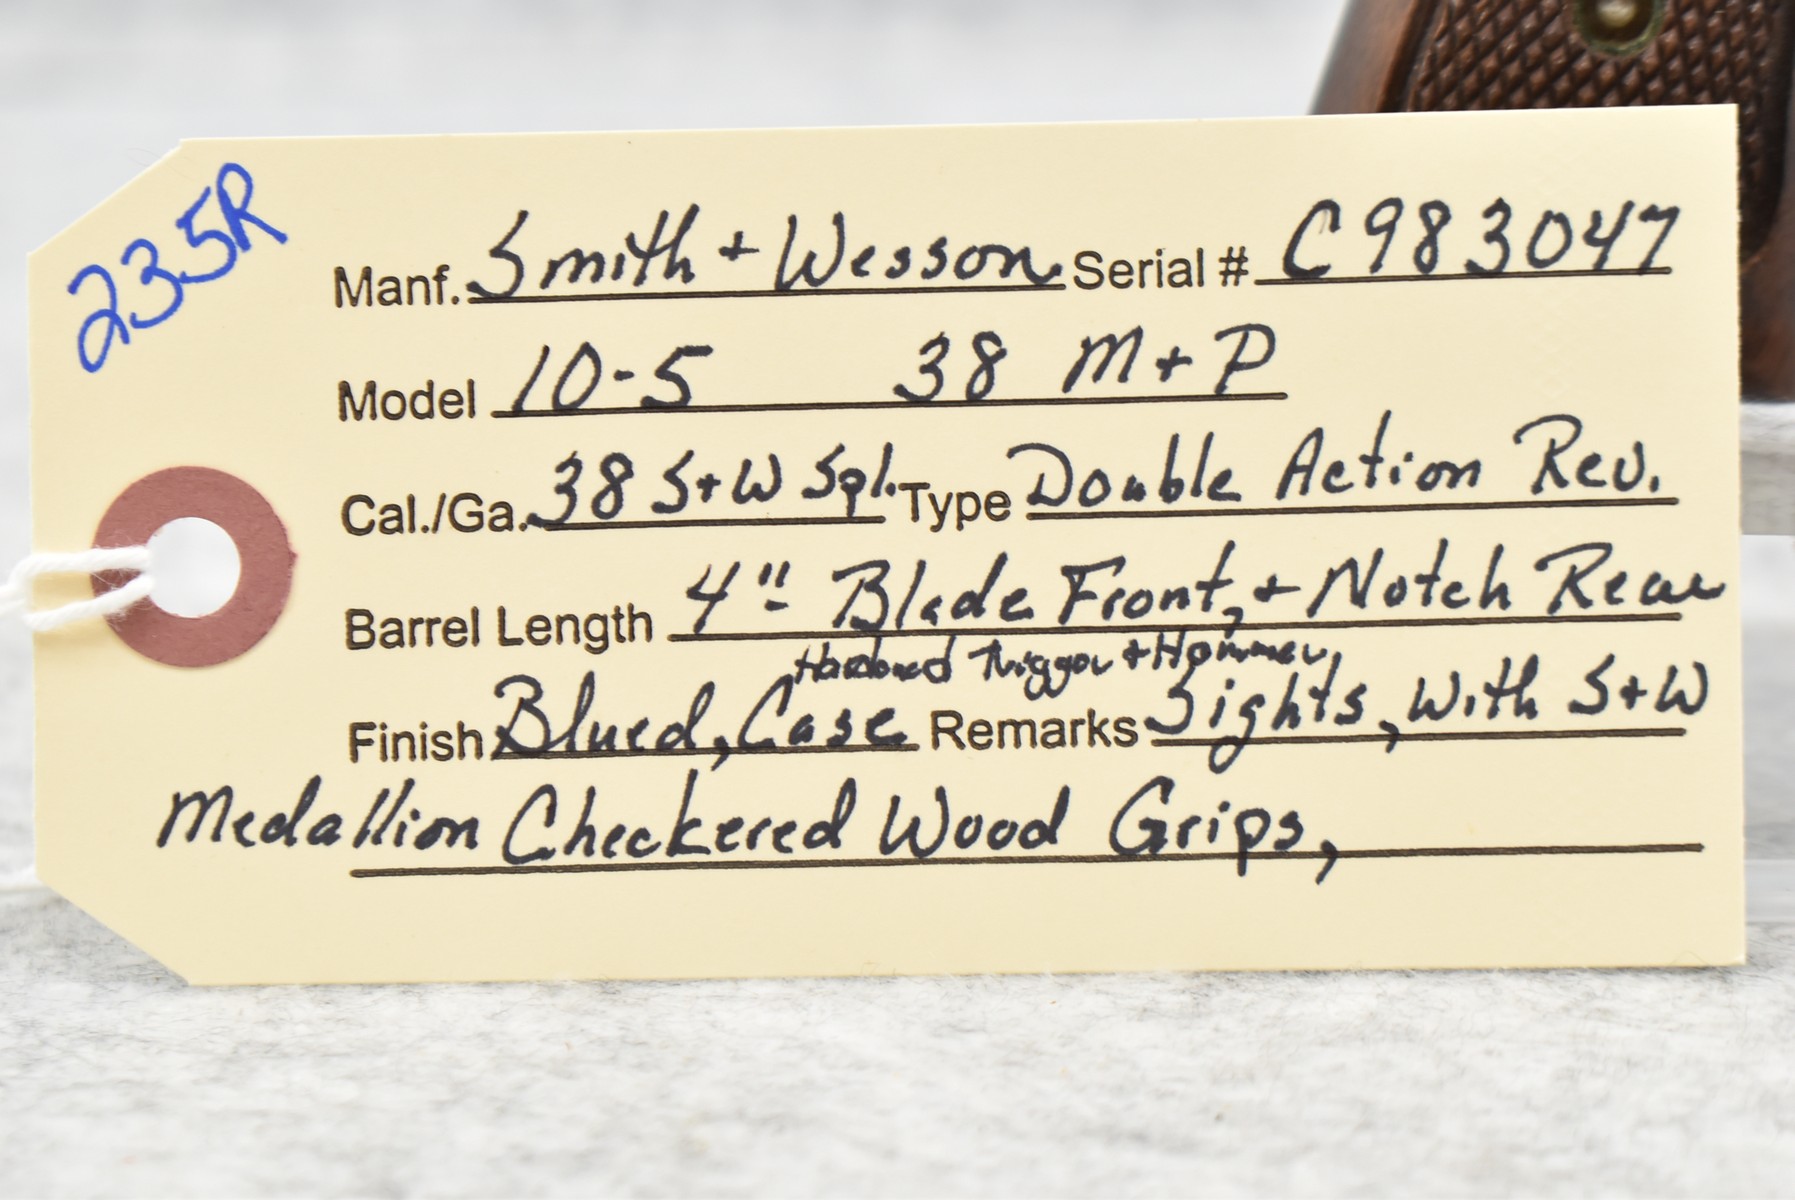 235R
Manf. Smith + Wesson Serial # C983047
Model 10-5 38 M+P
Cal./Ga. 38 S+W Spl. Type Double Action Rev.
Barrel Length 4" Blade Front, + Notch Rear
Hardened Trigger + Hammer,
Finish Blued, Case Remarks Sights, With S+W
Medallion Checkered Wood Grips,